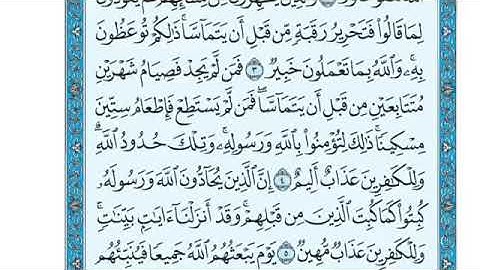 لِمَا قَالُوا۟ فَتَحْرِيرُ رَقَبَةٍ مِّن قَبْلِ أَن يَتَمَآسَّا ۚ ذَٰلِكُمْ تُوعَظُونَ
بِهِۦ ۚ وَٱللَّهُ بِمَا تَعْمَلُونَ خَبِيرٌ ٣ فَمَن لَّمْ يَجِدْ فَصِيَامُ شَهْرَيْنِ
مُتَتَابِعَيْنِ مِن قَبْلِ أَن يَتَمَآسَّا ۖ فَمَن لَّمْ يَسْتَطِعْ فَإِطْعَامُ سِتِّينَ
مِسْكِينًا ۚ ذَٰلِكَ لِتُؤْمِنُوا۟ بِٱللَّهِ وَرَسُولِهِۦ ۚ وَتِلْكَ حُدُودُ ٱللَّهِ ۗ
وَلِلْكَٰفِرِينَ عَذَابٌ أَلِيمٌ ٤ إِنَّ ٱلَّذِينَ يُحَآدُّونَ ٱللَّهَ وَرَسُولَهُۥ
كُبِتُوا۟ كَمَا كُبِتَ ٱلَّذِينَ مِن قَبْلِهِمْ ۚ وَقَدْ أَنزَلْنَآ ءَايَٰتٍۭ بَيِّنَٰتٍ ۚ
وَلِلْكَٰفِرِينَ عَذَابٌ مُّهِينٌ ٥ يَوْمَ يَبْعَثُهُمُ ٱللَّهُ جَمِيعًا فَيُنَبِّئُهُم